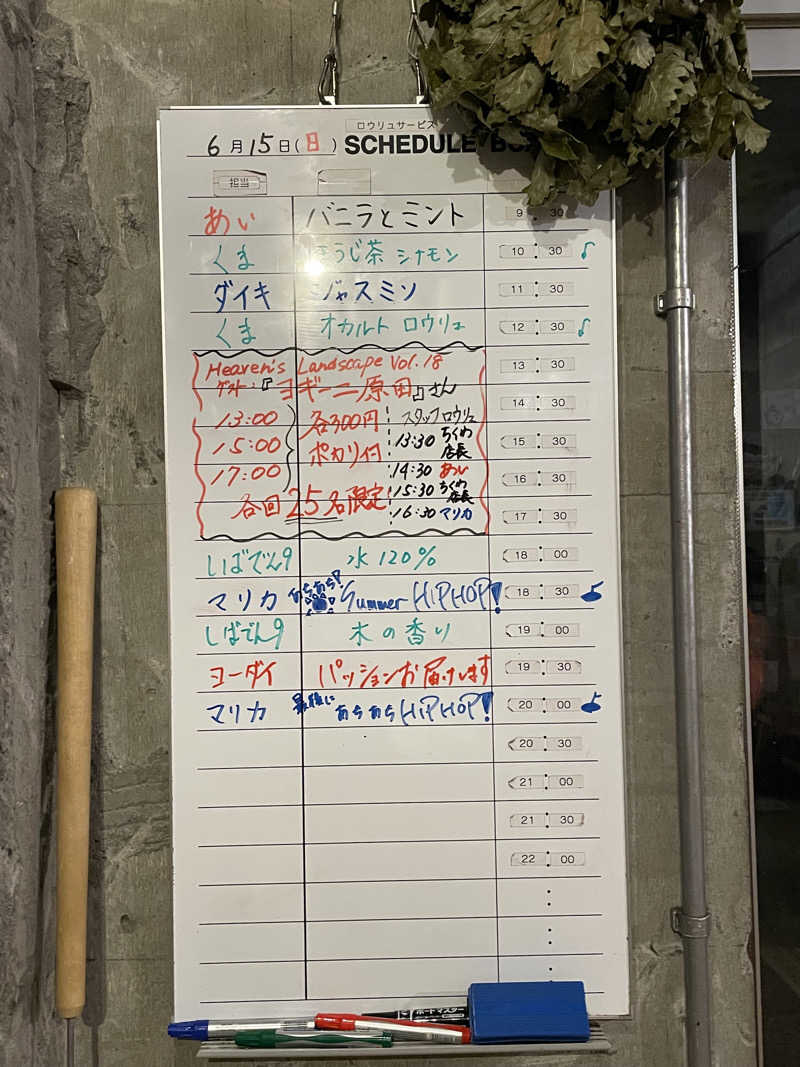 ロウリュサービス
6月15日(日) SCHEDULE
担当
あい バニラとミント 9:30
くま ほうじ茶 シナモン 10:30 ♪
ダイキ ジャスミン 11:30
くま オカルト ロウリュ 12:30 ♪
Heaven's Landscape Vol.18 13:30
ゲスト:『ヨギーニ原田』さん 14:30
13:00 各300円 スタッフロウリュ
15:00 ポカリ付 13:30 ちくわ店長 15:30
17:00 14:30 あい 16:30
15:30 ちくわ店長
各回25名限定 16:30 マリカ 17:30
しばでん9 水120% 18:00
マリカ あちあち! Summer HIPHOP! 18:30 ♪
しばでん9 木の香り 19:00
ヨーダイ パッションお届けします 19:30
マリカ 最後に あちあちHIPHOP! 20:00 ♪
20:30
21:00
21:30
22:00
:
:
:
ボードマスター